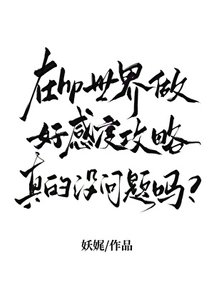 在hp世界做
好感度攻略
真的没问题吗？
妖娓/作品